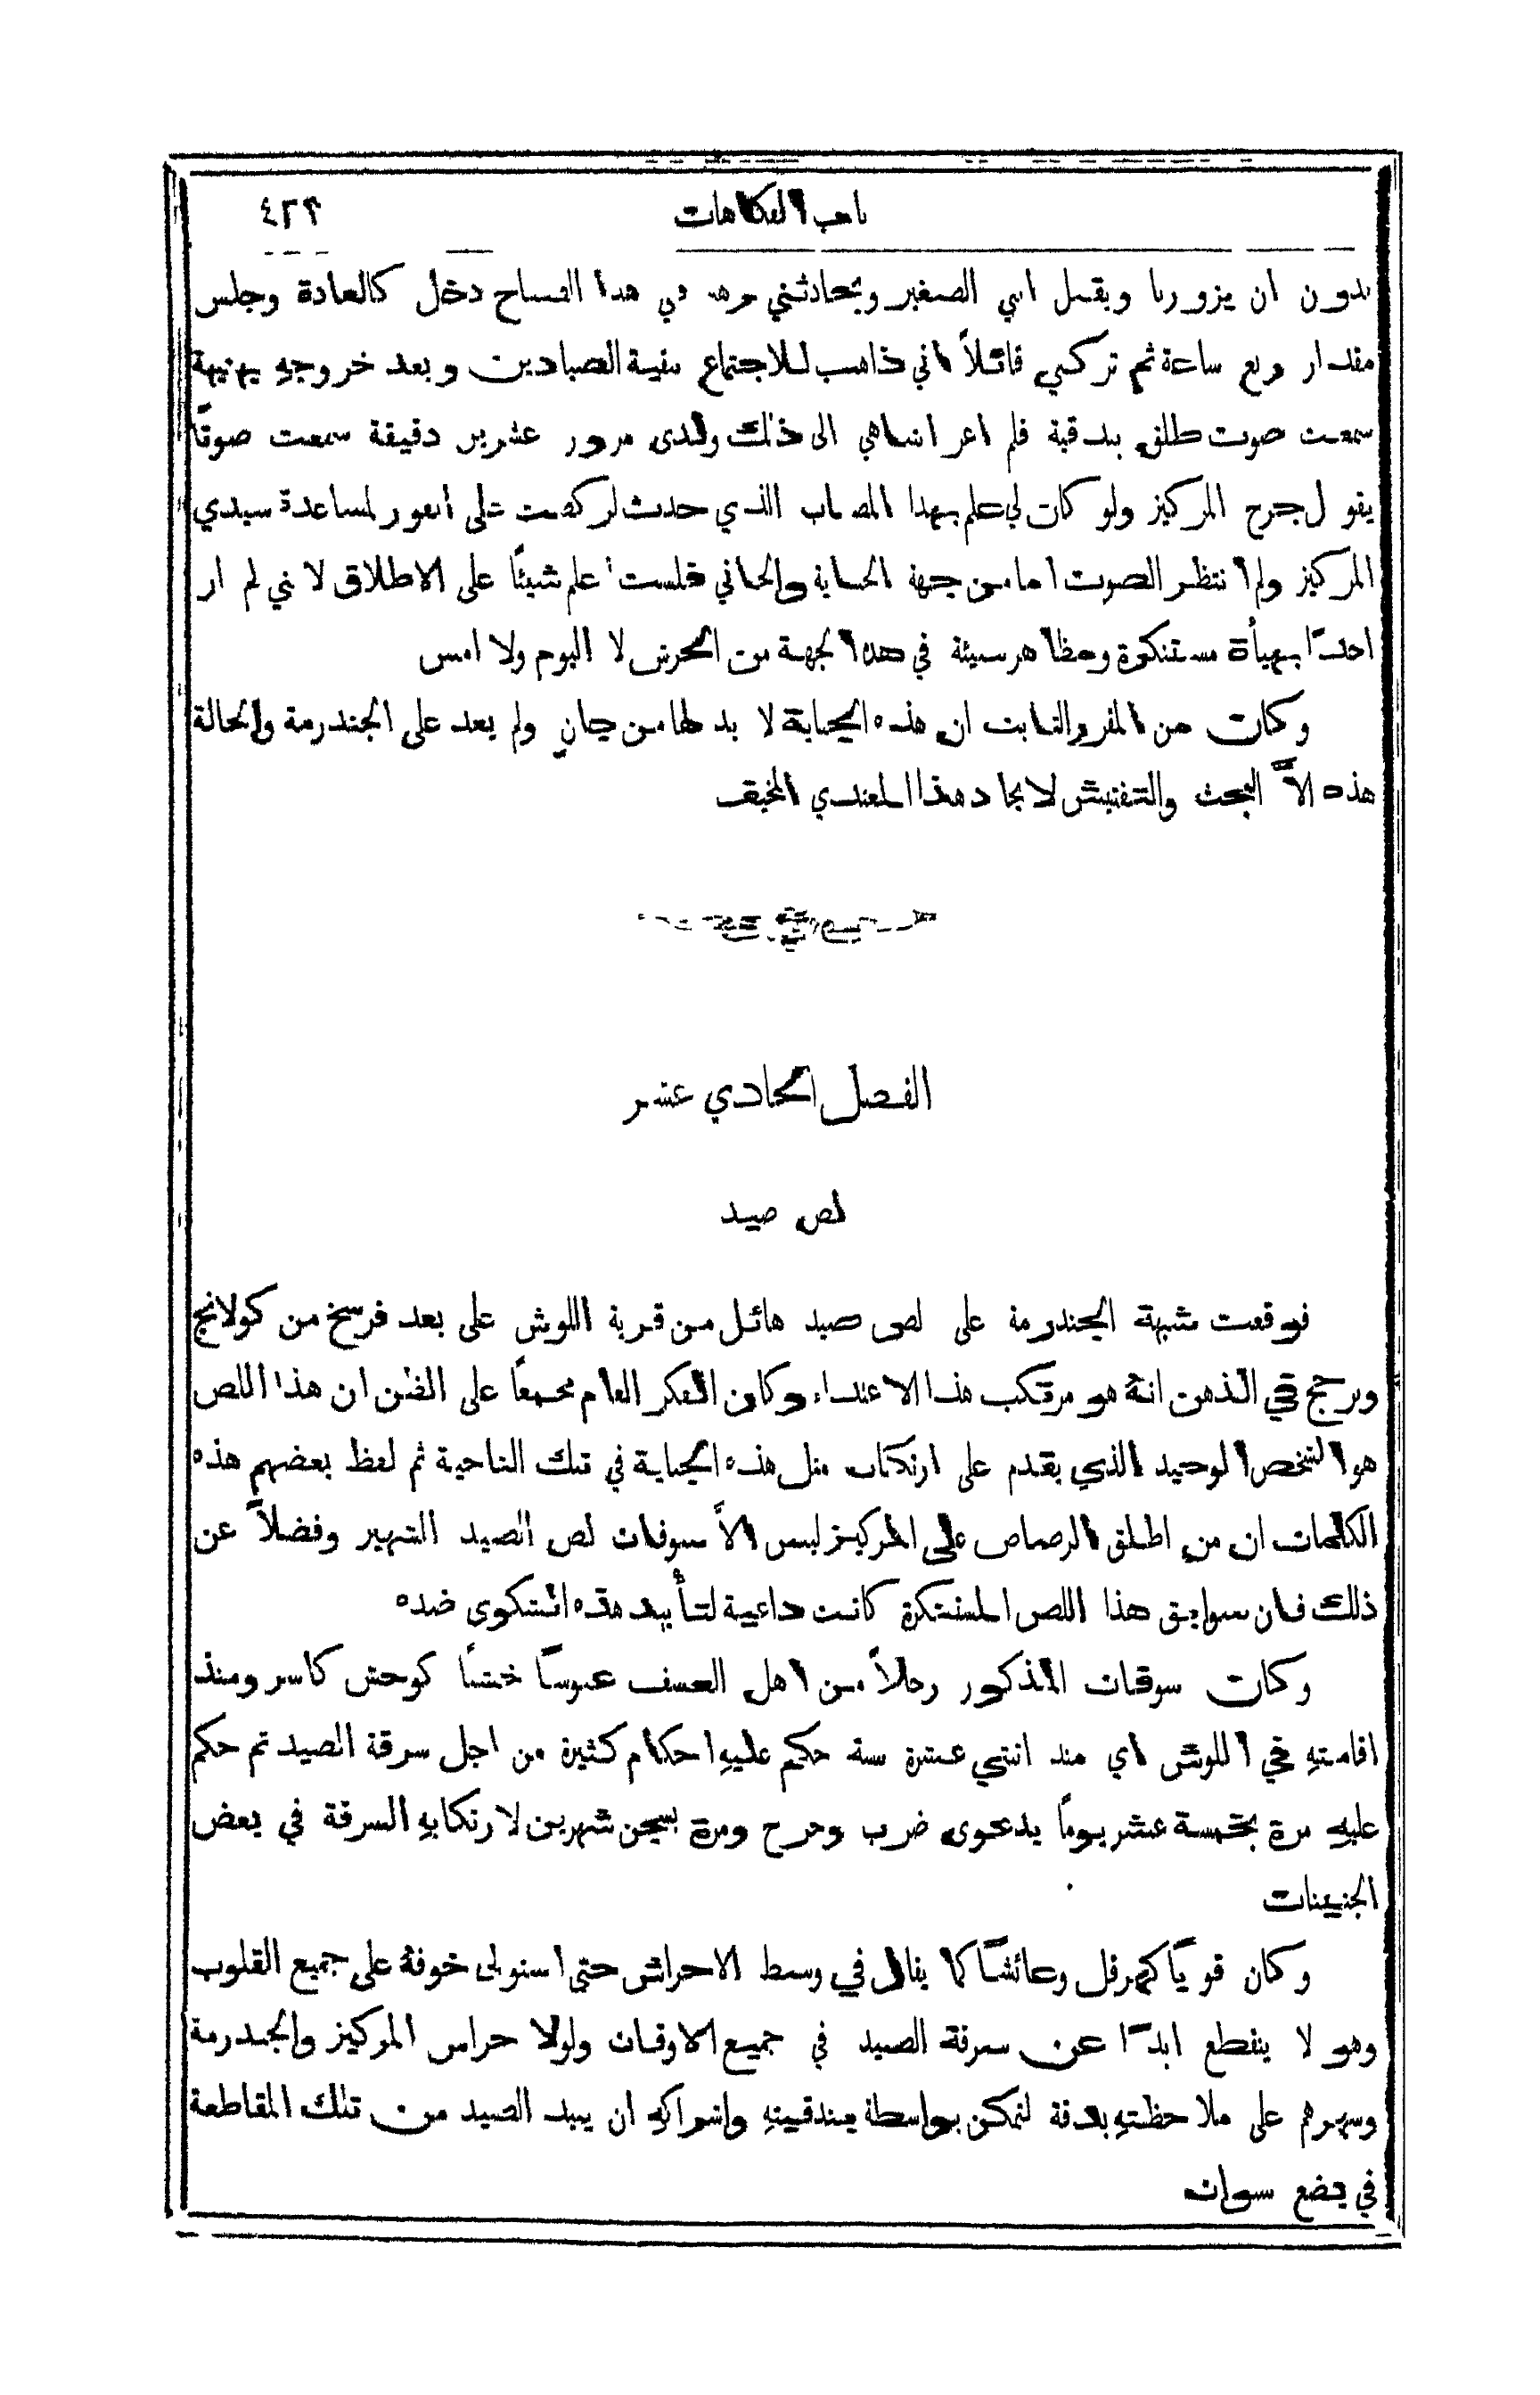 باب الفكاهات ٤٢٣
بدون ان يزورنا ويقبل ابني الصغير ويحادثني وهذ في هذا الصباح دخل كالعادة وجلس
مقدار ربع ساعة ثم تركني قائلاً اني ذاهب للاجتماع ببقية الصيادين وبعد خروجهِ بهنيهة
سمعت صوت طلق بندقية فلم اعر انتباهي الى ذلك ولدى مرور عشرين دقيقة سمعت صوتًا
يقول جرح المركيز ولو كان لي علم بهذا المصاب الذي حدث لركضت على الفور لمساعدة سيدي
المركيز ولم انتظر الصوت اما من جهة الجناية والجاني فلست اعلم شيئًا على الاطلاق لانني لم ار
احدًا بهيأة مستنكرة ومظاهر سيئة في هذه الجهة من الحرش لا اليوم ولا امس
وكان من المقرر الثابت ان هذه الجناية لا بد لها من جانٍ ولم يعد على الجندرمة والحالة
هذه الاَّ البحث والتفتيش لايجاد هذا المعتدي المخيف
الفصل الحادي عشر
لص صيد
فوقعت شبهة الجندرمة على لص صيد هائل من قرية اللوش على بعد فرسخ من كولانج
ورجح في الذهن انهُ هو مرتكب هذا الاعتداء وكان الفكر العام مجمعًا على الظن ان هذا اللص
هو الشخص الوحيد الذي يقدم على ارتكاب مثل هذه الجناية في تلك الناحية ثم لفظ بعضهم هذه
الكلمات ان من اطلق الرصاص على المركيز ليس الاَّ سوفان لص الصيد الشهير وفضلاً عن
ذلك فان سوابق هذا اللص المستنكرة كانت داعية لتأييد هذه الشكوى ضده
وكان سوفان المذكور رجلاً من اهل العسف عبوسًا خشنًا كوحش كاسر ومنذ
اقامتهِ في اللوش اي منذ اثنتي عشرة سنة حكم عليهِ احكام كثيرة من اجل سرقة الصيد ثم حكم
عليهِ مرة بخمسة عشر يومًا بدعوى ضرب وجرح ومرة بسجن شهرين لارتكابهِ السرقة في بعض
الجنينات
وكان قويًا كهرقل وعائشًا كما يقال في وسط الاحراش حتى استولى خوفهُ على جميع القلوب
وهو لا ينقطع ابدًا عن سرقة الصيد في جميع الاوقات ولولا حراس المركيز والجندرمة
وسهرهم على ملاحظتهِ بدقة لتمكن بواسطة بندقيتهِ واشراكهِ ان يبيد الصيد من تلك المقاطعة
في بضع سنوات